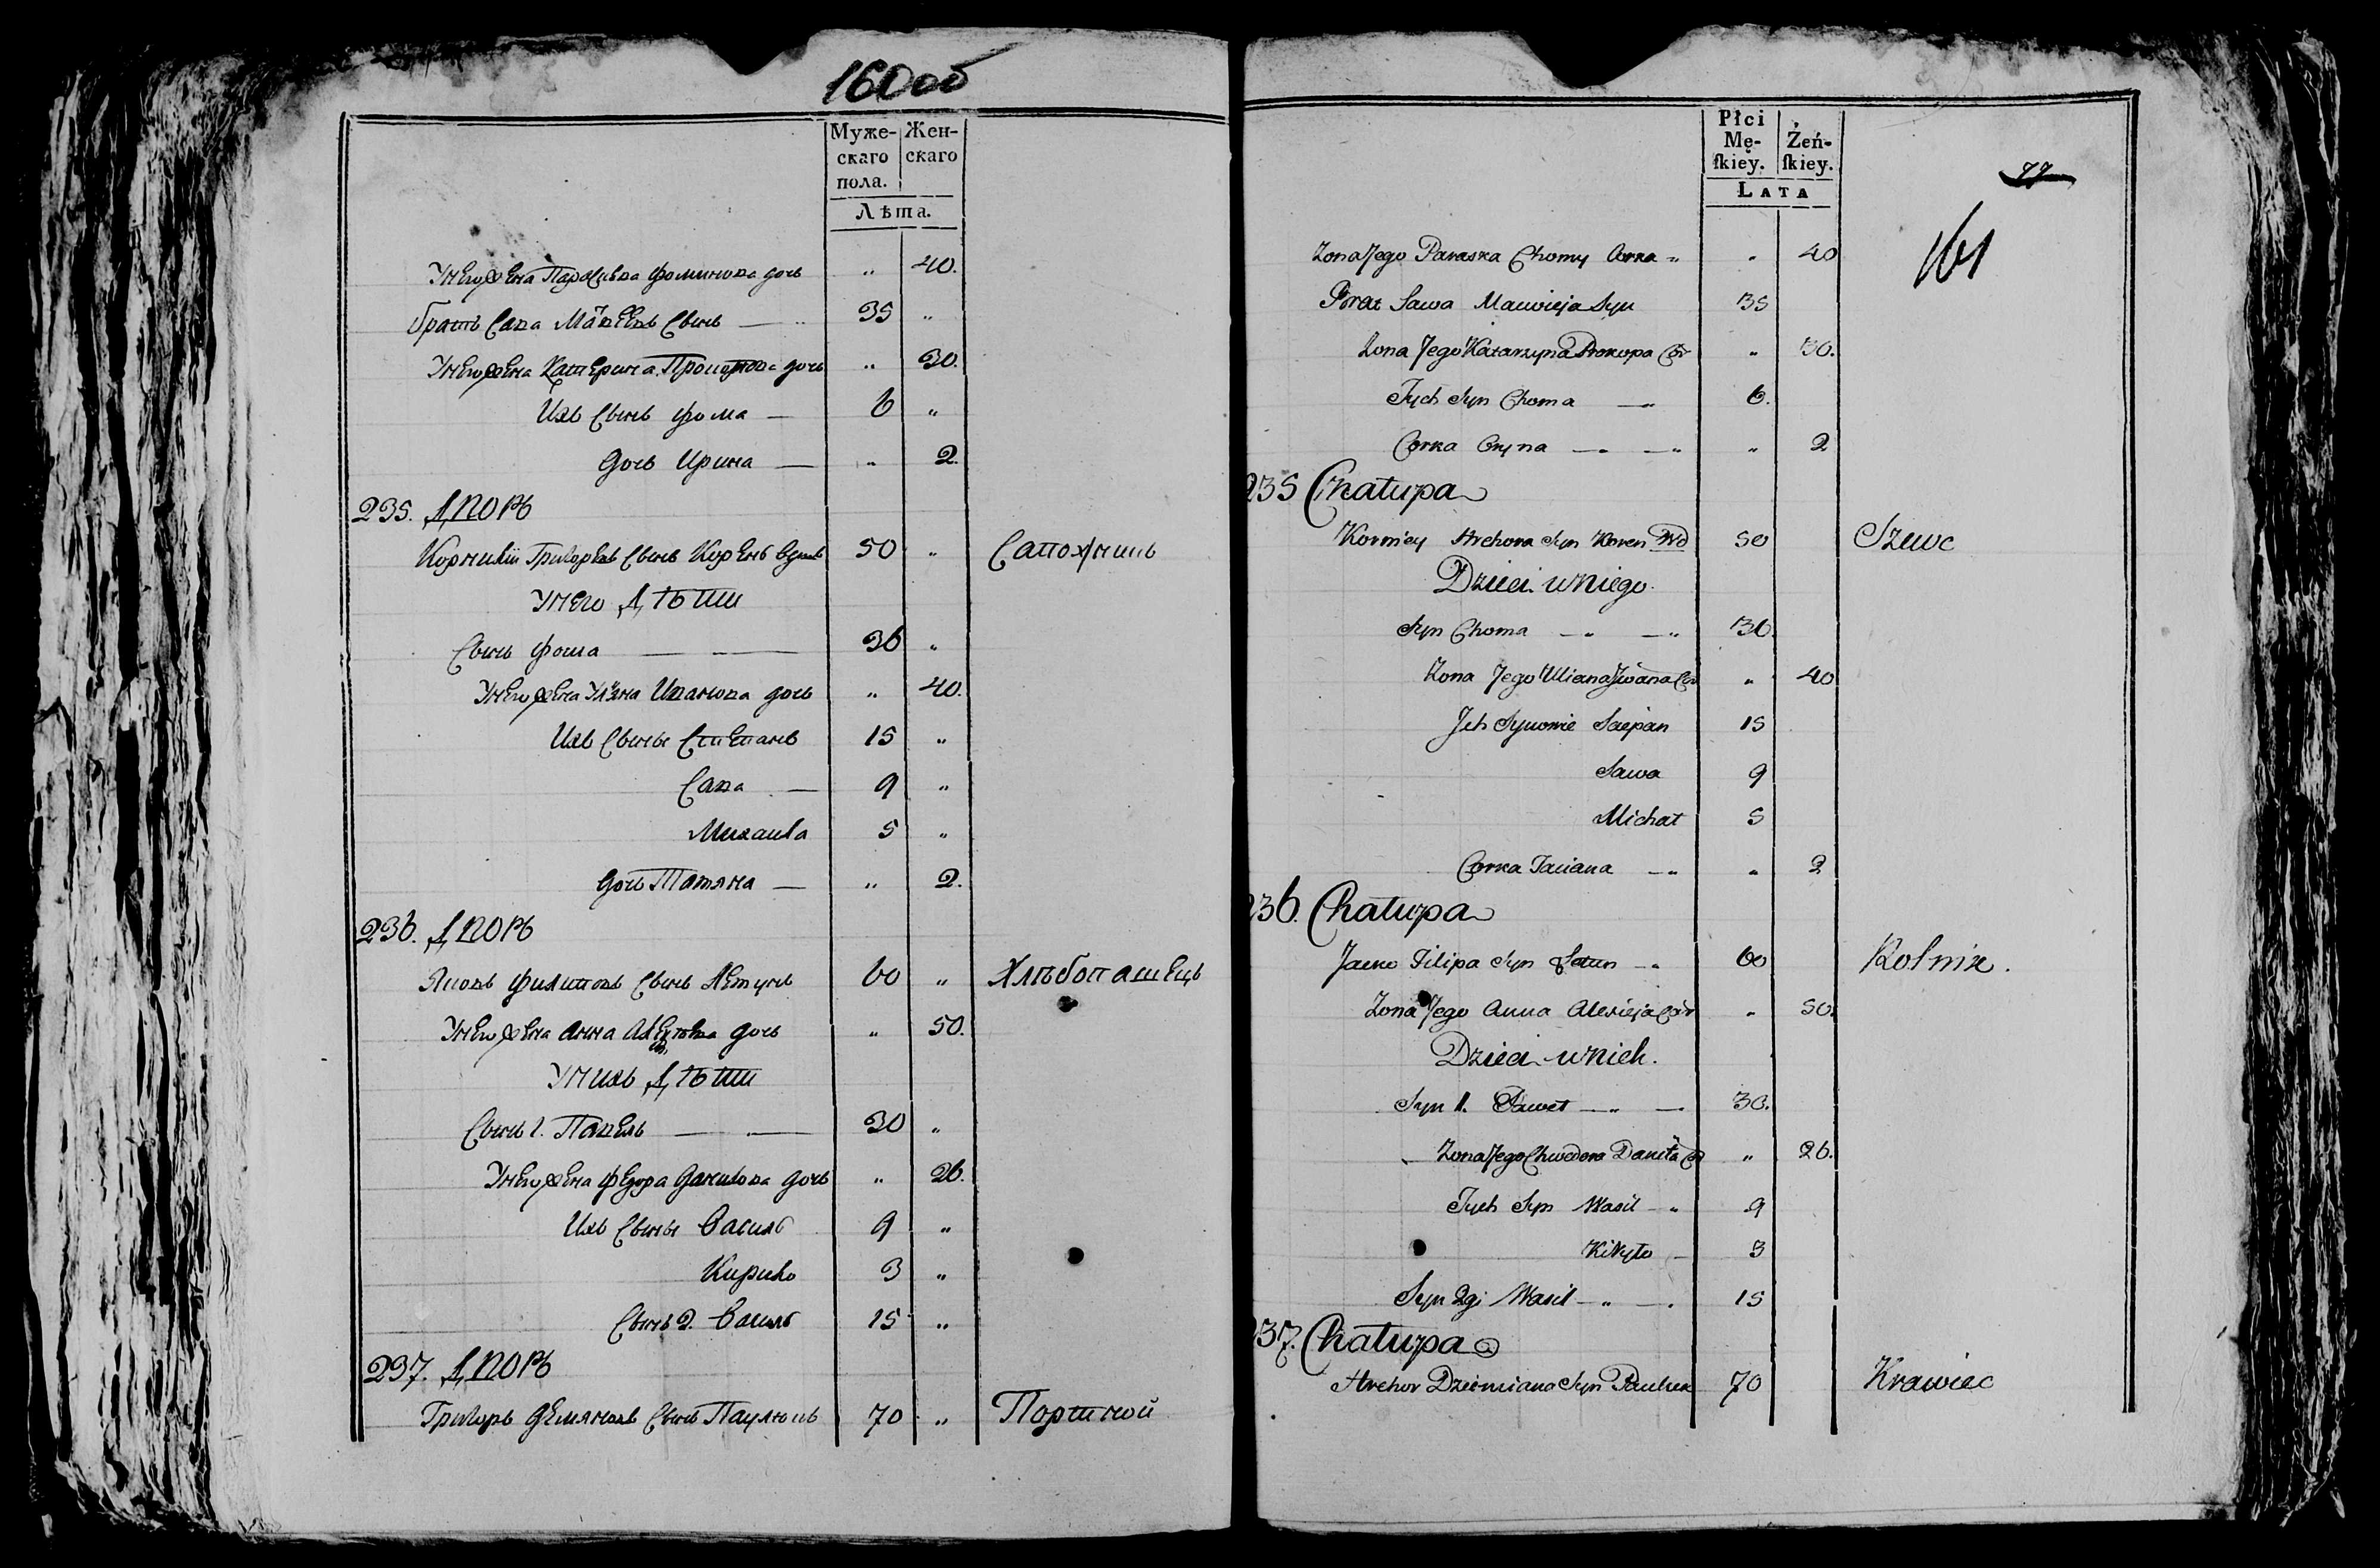 160об
Муже- Жен-
скаго скаго
пола.
Лѣта.
У него жена Парасъвка Фоминова дочь „ 40.
братъ Сава Матѣевъ Сынъ — „ 35 „
У него жена Катерина Прокопова дочь „ 30.
Ихъ Сынъ Фома — 6 „
Дочь Ирина — „ 2.
235. Дворъ
Корнилій Григорьевъ Сынъ Корень 50 „ Сапожникъ
У него Дѣти
Сынъ Фома — — 36 „
У него жена Ульяна Иванова дочь „ 40.
Ихъ Сыны Степанъ 15 „
Сава — 9 „
Михаила 5 „
Дочь Татяна — „ 2.
236. Дворъ
Яковъ Филиповъ Сынъ Летунъ 60 „ Хлѣбопашецъ
У него жена Анна дочь „ 50.
У нихъ Дѣти
Сынъ 1. Павелъ — — 30 „
У него жена Федора Данилова дочь „ 26.
Ихъ Сыны Василь 9 „
Кирило 3 „
Сынъ 2. Василь 15 „
237. Дворъ
Григоръ Демяновъ Сынъ Паулюкъ 70 „ Портной
Płci
Mę- Żeń-
ſkiey. ſkiey.
Lata
77
161
Zona Jego Paraska Chomy Corka „ „ 40
Brat Sawa Macwieja Syn 35
Zona Jego Katarzyna Prokopa Cor „ 30.
Tych Syn Choma — 6.
Corka Oryna — — „ „ 2
235 Chałupa
Korniey Hrehora Syn Koren Wd 50 Szewc
Dzieci u niego
Syn Choma — — „ 36
Zona Jego Uliana Jwana Cor „ 40
Jch Synowie Scepan 15
Sawa 9
Michał 5
Corka Taciana — „ „ 2
236. Chałupa
Jacko Filipa Syn Letun — 60 Rolnik.
Zona Jego Anna Alexieja Cor „ 50.
Dzieci u nich.
Syn 1. Paweł — „ — 30.
Zona Jego Chwedora Daniła Cor „ 26.
Tych Syn Wasil — „ 9
Kiryło — 3
Syn 2gi Wasil — „ — 15
237. Chałupa
Hrehor Dziemiana Syn Pauluk 70 Krawiec